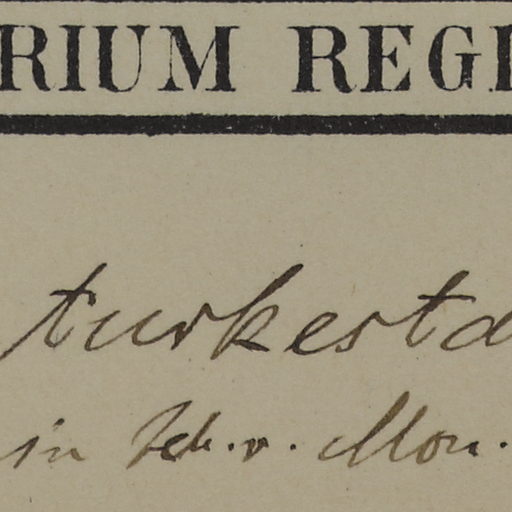 RIUM REGI
turkesta
in Feb. v. Mon.